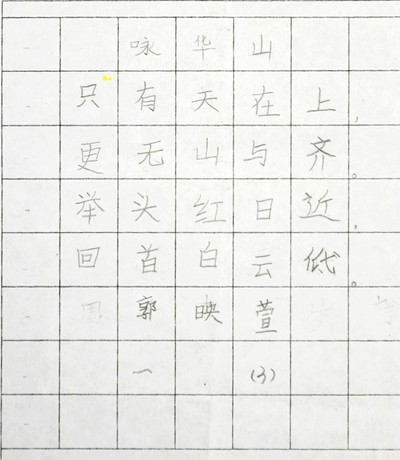 咏华山
只有天在上，
更无山与齐。
举头红日近，
回首白云低。
郭映萱
一 (3)